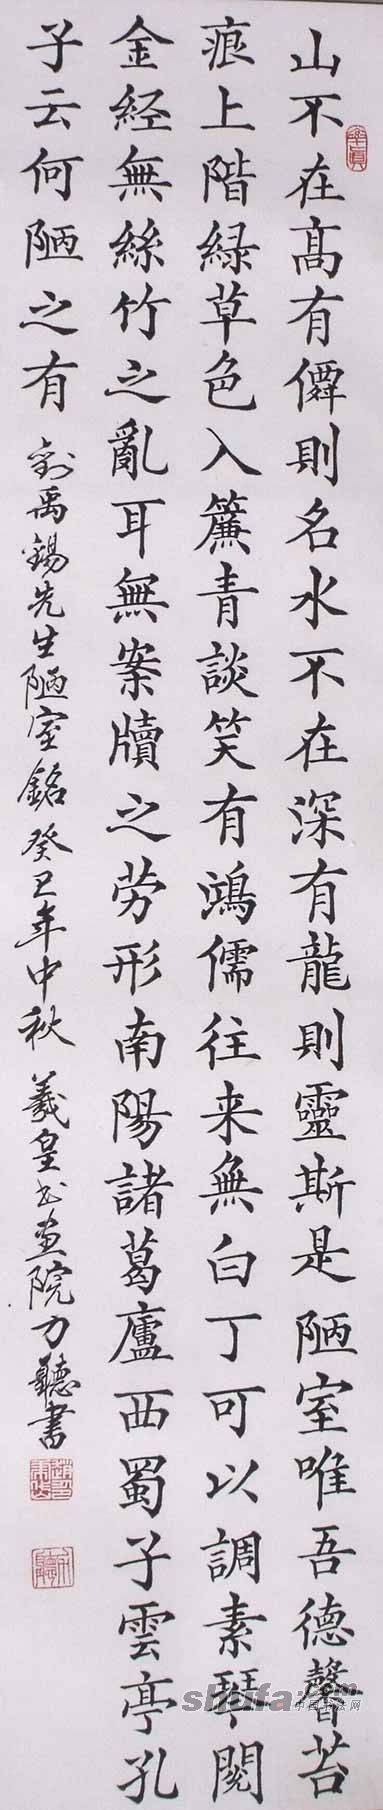 山不在髙有僊則名水不在深有龍則靈斯是陋室唯吾德馨苔
痕上階緑草色入簾青談笑有鴻儒往来無白丁可以調素琴閱
金経無絲竹之亂耳無案牘之劳形南陽諸葛廬西蜀子雲亭孔
子云何陋之有 劉禹錫先生陋室銘 癸丑年中秋 羲皇书画院力聽書
shufa.com
中国书法网